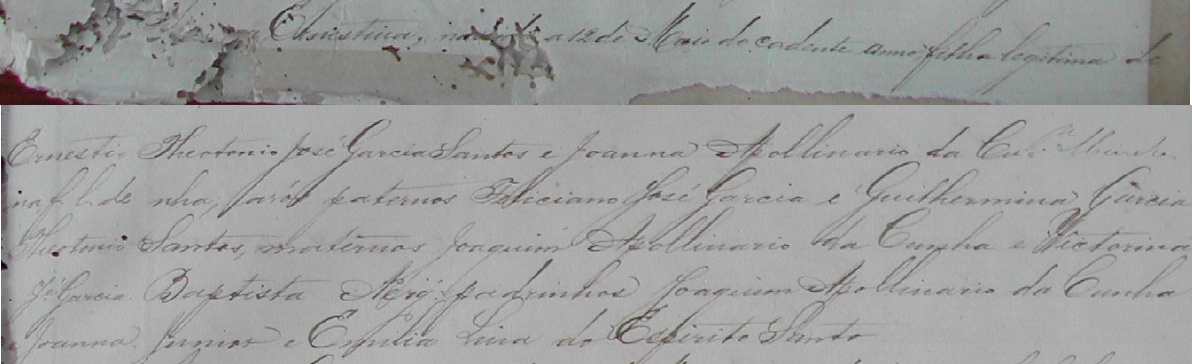 Ernestina, nascida a 12 de Maio do cadente anno, filha legitima de
Ernesti- Theotonio José Garcia Santos e Joanna Apollinario da Cu-
na f. l. de nha, avós paternos Feliciano José Garcia e Guilhermina Garcia
Theotonio Santos, maternos Joaquim Apollinario da Cunha e Victorina
Jé Garcia Baptista padrinhos Joaquim Apollinario da Cunha
e Joanna. Junior e Emilia Lina do Espirito Santo